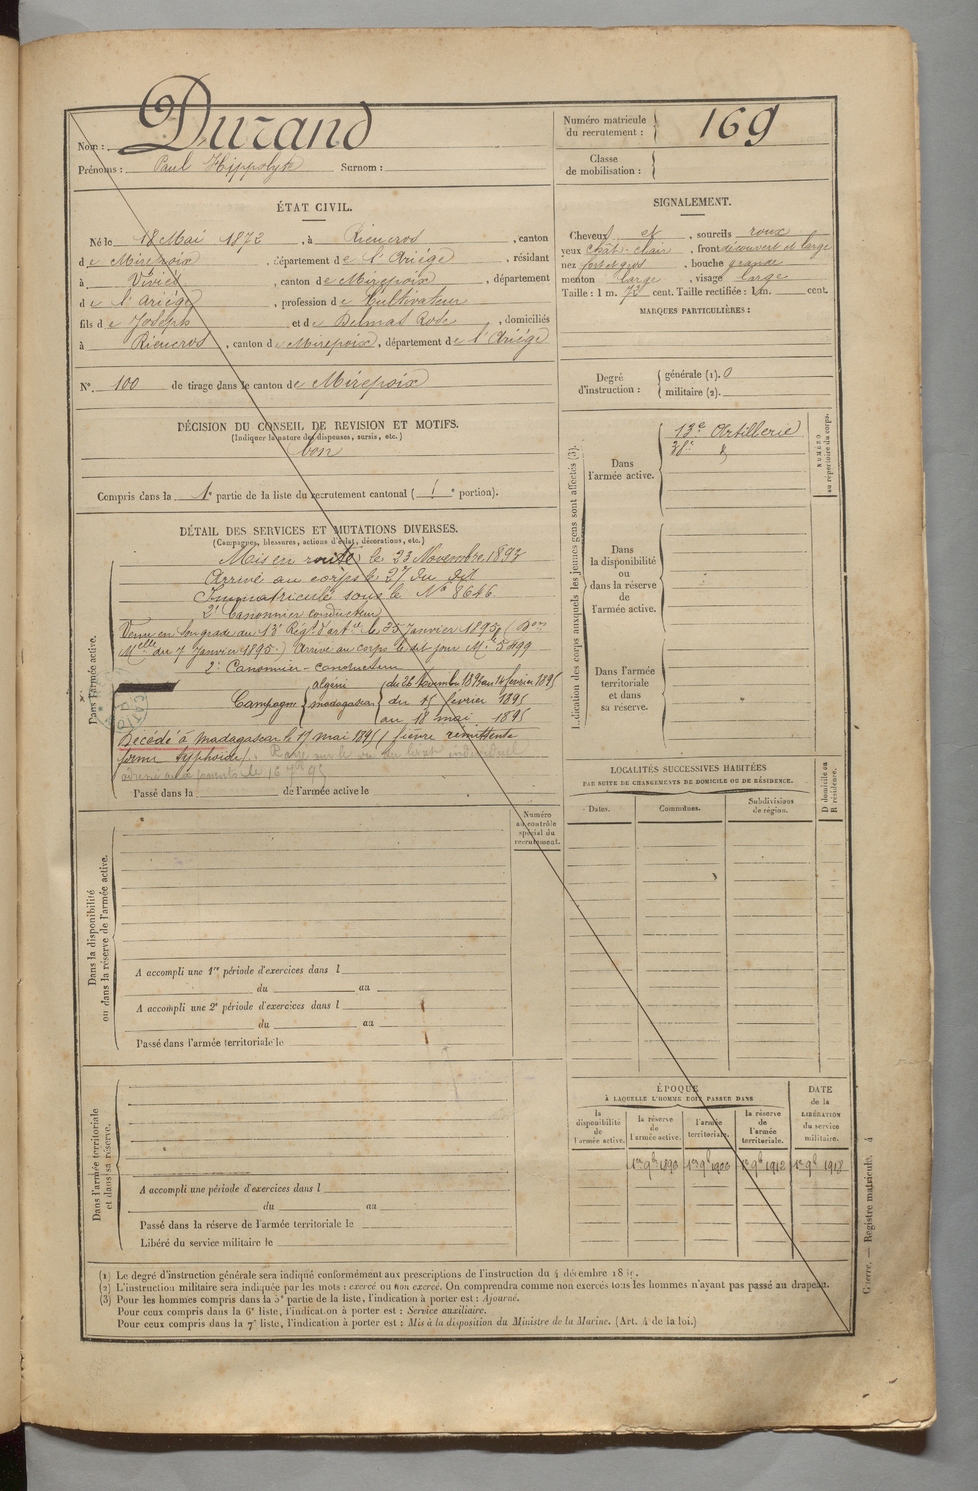 Nom : Durand
Prénoms : Paul Hippolyte Surnom :
Numéro matricule du recrutement : 169
Classe de mobilisation :
ÉTAT CIVIL.
Né le 18 Mai 1872, à Rieucros, canton
de Mirepoix, département de l'Ariège, résidant
à Viviès, canton de Mirepoix, département
de l'Ariège, profession de Cultivateur
fils de Joseph et de Delmas Rose, domiciliés
à Rieucros, canton de Mirepoix, département de l'Ariège
N°. 100 de tirage dans le canton de Mirepoix
DÉCISION DU CONSEIL DE REVISION ET MOTIFS.
(Indiquer la nature des dispenses, sursis, etc.)
bon
Compris dans la 1e partie de la liste du recrutement cantonal ( 1e portion).
SIGNALEMENT.
Cheveux et, sourcils roux
yeux chât: clair, front découvert et large
nez fort et gros, bouche grande
menton large, visage large
Taille : 1 m. 72 cent. Taille rectifiée : 1 m. cent.
MARQUES PARTICULIÈRES :
Degré d'instruction : générale (1). 0
militaire (2).
DÉTAIL DES SERVICES ET MUTATIONS DIVERSES.
(Campagnes, blessures, actions d'éclat, décorations, etc.)
Dans l'armée active.
Mis en route le 23 Novembre 1893
Arrivé au corps le 27 du dit
Immatriculé sous le No 8646
2e Canonnier conducteur
Venu en son grade au 13e Régt d'artie le 25 Janvier 1895 (Don
Melle du 7 Janvier 1895.) Arrivé au corps le dit jour Mle 5499
2e Canonnier-conducteur
Campagne algérie du 26 novembre 1893 au 14 février 1895
madagascar du 15 février 1895
au 18 mai 1895
Décédé à Madagascar le 17 mai 1895 (fièvre rémittente
forme typhoïde).
Passé dans la de l'armée active le
Indication des corps auxquels les jeunes gens sont affectés (3).
NUMÉRO au répertoire du corps.
Dans l'armée active.
13e Artillerie
38e
Dans la disponibilité ou dans la réserve de l'armée active.
Dans l'armée territoriale et dans sa réserve.
LOCALITÉS SUCCESSIVES HABITÉES
PAR SUITE DE CHANGEMENTS DE DOMICILE OU DE RÉSIDENCE.
Dates. Communes. Subdivisions de région.
D domicile ou R résidence.
Numéro au contrôle spécial du recrutement.
Dans la disponibilité ou dans la réserve de l'armée active.
A accompli une 1re période d'exercices dans l
du au
A accompli une 2e période d'exercices dans l
du au
Passé dans l'armée territoriale le
Dans l'armée territoriale et dans sa réserve.
A accompli une période d'exercices dans l
du au
Passé dans la réserve de l'armée territoriale le
Libéré du service militaire le
ÉPOQUE
À LAQUELLE L'HOMME DOIT PASSER DANS
la disponibilité de l'armée active.
la réserve de l'armée active.
l'armée territoriale.
la réserve de l'armée territoriale.
DATE de la LIBÉRATION du service militaire.
(1) Le degré d'instruction générale sera indiqué conformément aux prescriptions de l'instruction du 4 décembre 18
(2) L'instruction militaire sera indiquée par les mots : exercé ou non exercé. On comprendra comme non exercés tous les hommes n'ayant pas passé au drapeau.
(3) Pour les hommes compris dans la 5e partie de la liste, l'indication à porter est : Ajourné.
Pour ceux compris dans la 6e liste, l'indication à porter est : Service auxiliaire.
Pour ceux compris dans la 7e liste, l'indication à porter est : Mis à la disposition du Ministre de la Marine. (Art. 4 de la loi.)
Guerre. — Registre matricule. 4